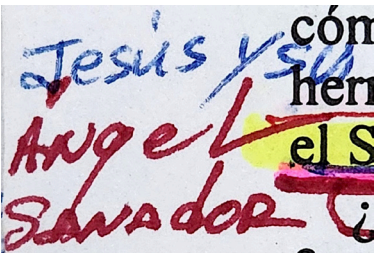 Jesús y su
Ángel
SANADOR
cóm
herm
el S
¿